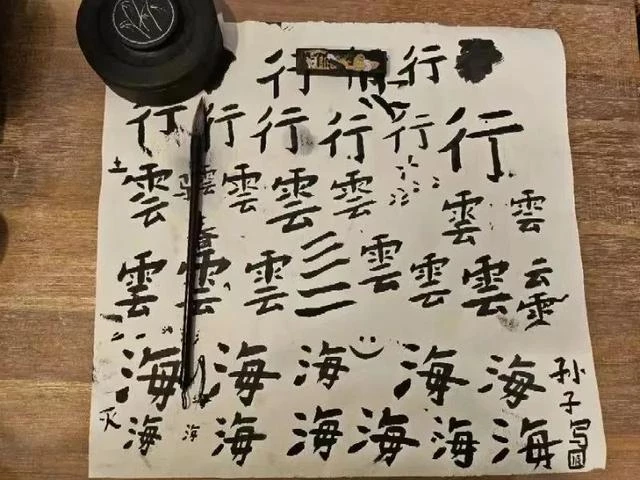 行 行
行 行 行 行 行 行
土 雲 雲 雲 雲 雲 雲 雲
雲 雲 雲 三 二 雲 雲 雲 云
雲
海 海 海 海 海
海 海 海 海 海 海 海
孙子写